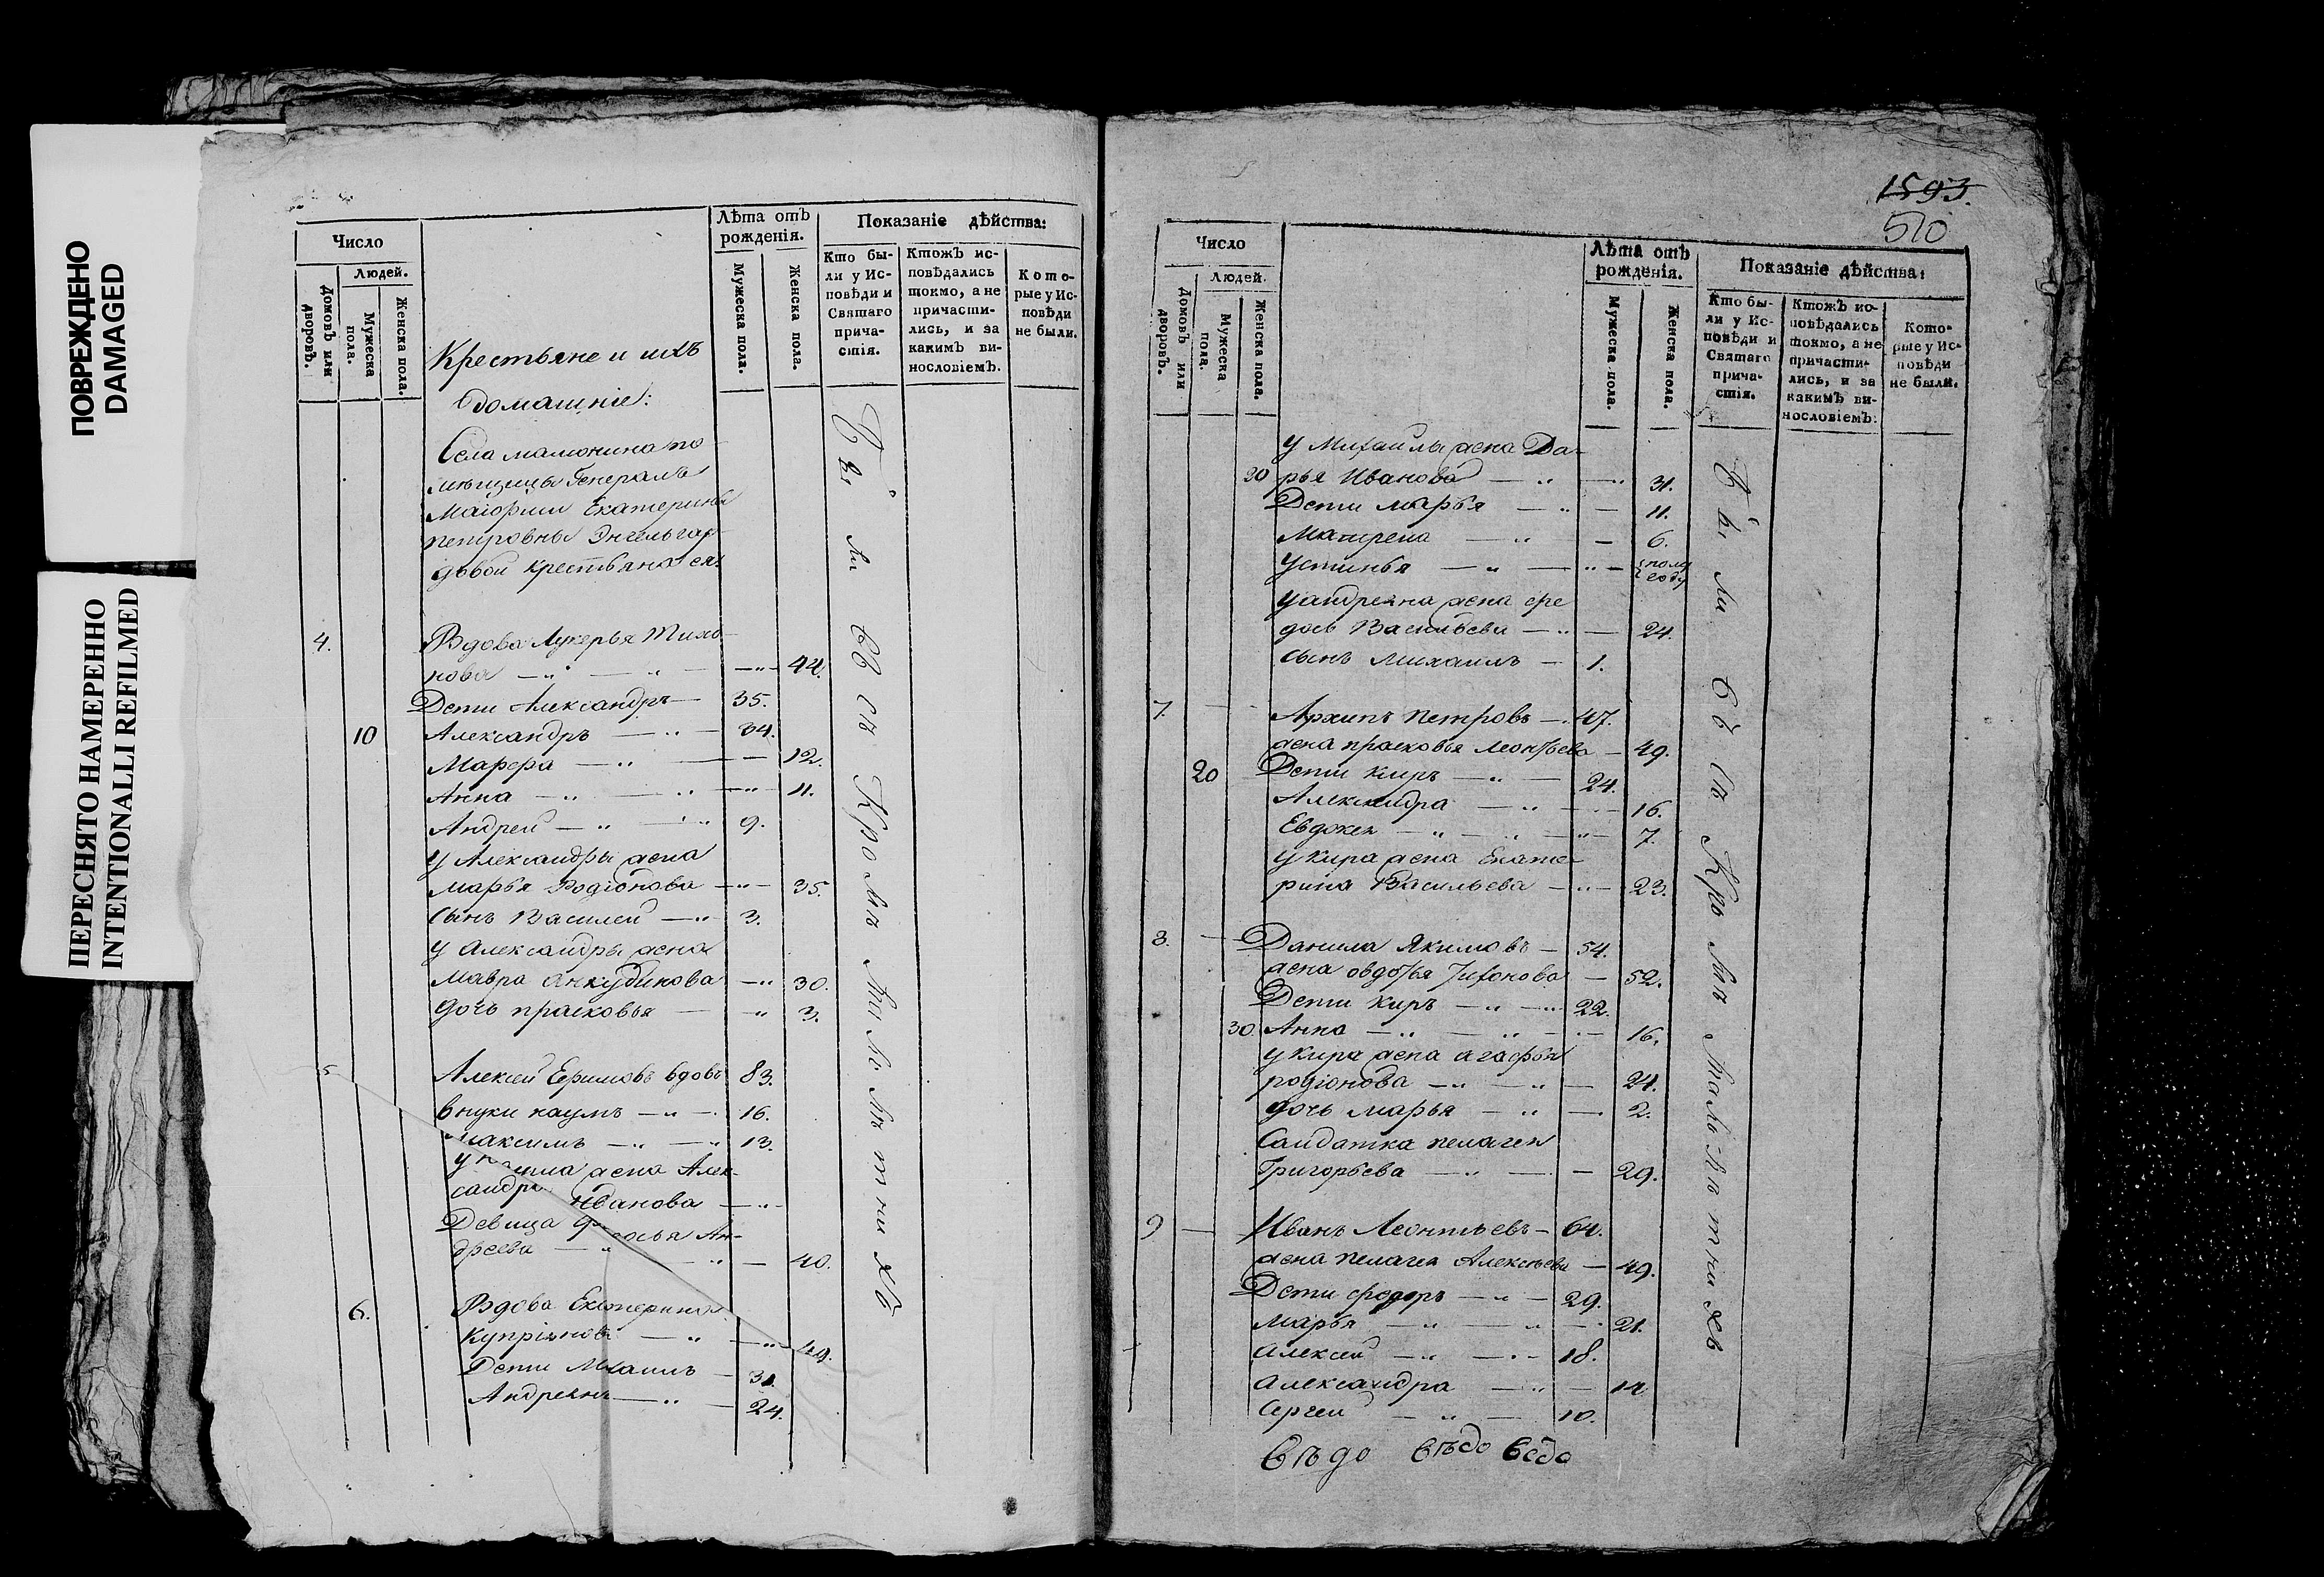 ПОВРЕЖДЕНО
DAMAGED
ПЕРЕСНЯТО НАМЕРЕННО
INTENTIONALLI REFILMED
Число
Людей.
Домовъ или дворовъ.
Мужеска пола.
Женска пола.
Крестьяне и ихъ
домашніе:
Лѣта отъ рожденія.
Мужеска пола.
Женска пола.
Показаніе дѣйства:
Кто были у Исповѣди и Святаго причастія.
Ктожъ исповѣдались токмо, а не причастились, и за какимъ винословіемъ.
Которые у Исповѣди не были.
Села мамонина по
мѣщицы Генералъ
Маіорши Екатерины
петровны Энгельгар
довой крестьяна
4. Вдова Лукерья Тихо
нова 44.
Дети Александръ 35.
10 Александръ 34.
Марфа 12.
Анна 11.
Андрей 9.
у Александры жена
марья Родіонова 35.
сынъ Василей 3.
у Александры жена
мавра Анкудинова 30.
дочь прасковья 3.
5 Алексей Ефимовъ вдовъ 83.
внуки наумъ 16.
максимъ 13.
у наума жена Алек
сандра Иванова
Девица Ан
дреева 40.
6. Вдова Екатерина
Купріянова 49.
Дети Михаилъ 31.
Андреянъ 24.
Были Всѣ Кромѣ Малолѣтнихъ
1593.
510
Число
Людей.
Домовъ или дворовъ.
Мужеска пола.
Женска пола.
Лѣта отъ рожденія.
Мужеска пола.
Женска пола.
Показаніе дѣйства:
Кто были у Исповѣди и Святаго причастія.
Ктожъ исповѣдались токмо, а не причастились, и за какимъ винословіемъ.
Которые у Исповѣди не были.
у Михаилы жена Да
20 рья Иванова 31.
Дети марья 11.
Матрена 6.
Устинья полу году
у андреяна жена фе
дось Васильева 24.
сынъ михаилъ 1.
7. Архипъ петровъ 47.
жена прасковья леонтьева 49.
20 Дети киръ 24.
Александра 16.
Евдокея 7.
у кира жена Екате
рина Васильева 23.
8. Данила Якимовъ 54.
жена овдотья Тихонова 52.
Дети киръ 22.
30. Анна 16.
у кира жена агафья
родіонова 24.
дочь марья 2.
Салдатка пелагея
Григорьева 29.
9 Иванъ Леонтьевъ 64.
жена пелагея Алексѣева 49.
Дети федоръ 29.
Марья 21.
алексей 18.
александра 14
Сергей 10.
Были всѣ Кромѣ Малолѣтнихъ